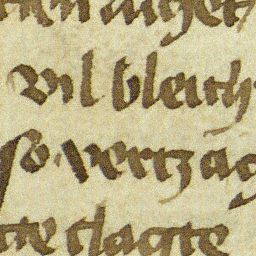 vil bleich
so vertzag
te clagte